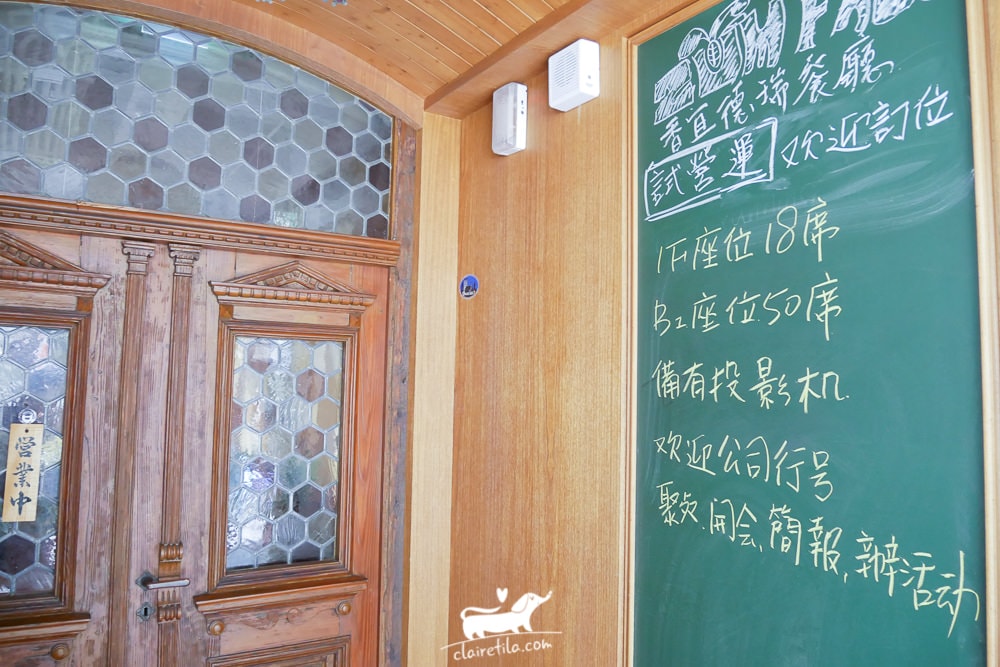 香宜德瑞餐廳
試營運 欢迎訂位
1F座位18席
B1座位50席
備有投影机
欢迎公司行号
聚处.開会、簡報,辦活动
營業中
clairetila.com